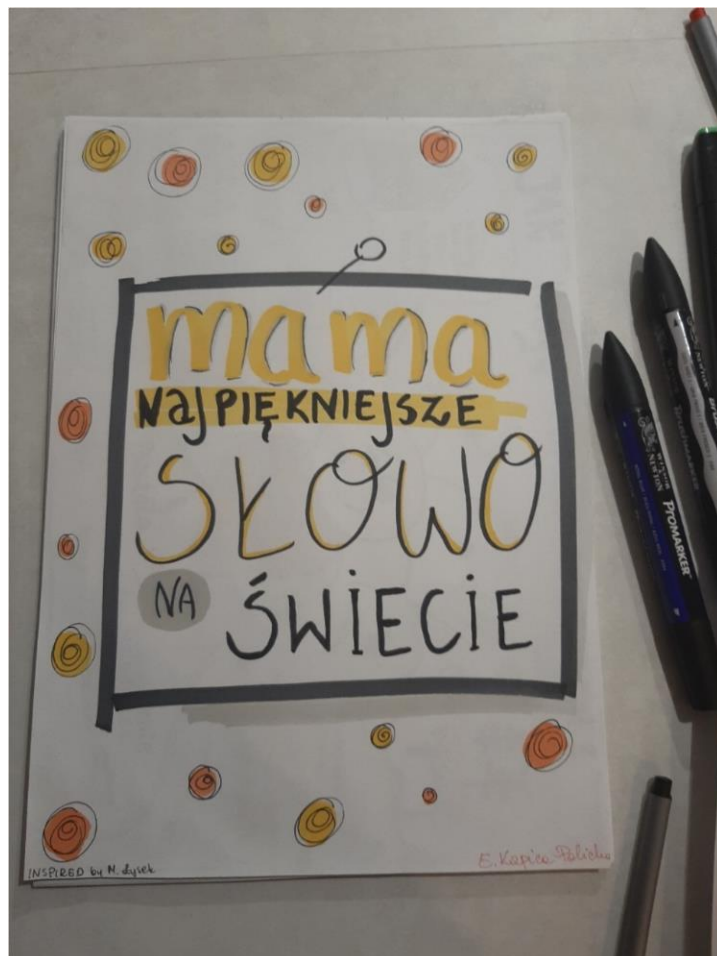 mama
NajPIĘKNIEJSZE
SŁOWO
NA ŚWIECIE
INSPIRED by M. Łysek
E. Kapica
WINSOR
NEWTON
PROMARKER